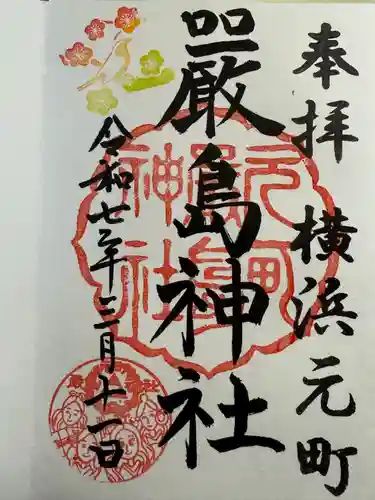 奉拝 横浜元町
嚴島神社
令和七年三月十一日
元町
嶋
神社